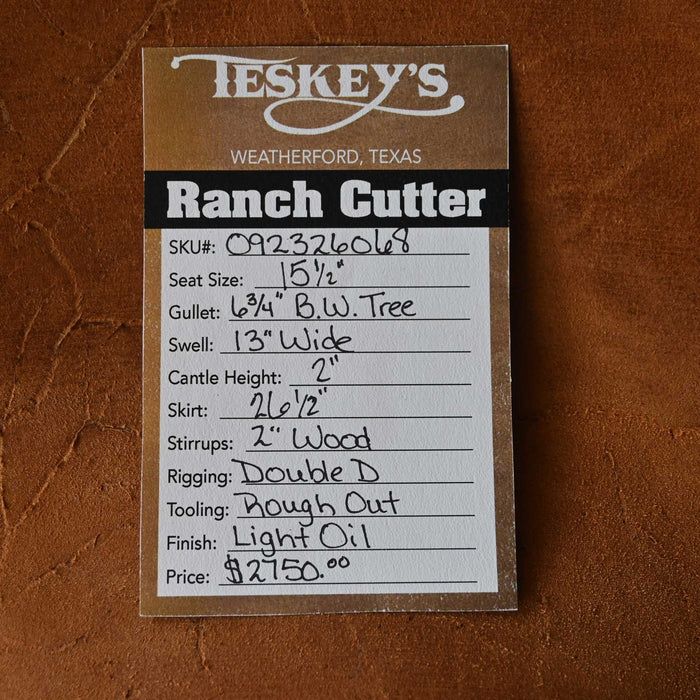 TESKEY'S
WEATHERFORD, TEXAS
Ranch Cutter
SKU#: 092326068
Seat Size: 15 1/2"
Gullet: 6 3/4" B.W. Tree
Swell: 13" Wide
Cantle Height: 2"
Skirt: 26 1/2"
Stirrups: 2" Wood
Rigging: Double D
Tooling: Rough Out
Finish: Light Oil
Price: $2750.00